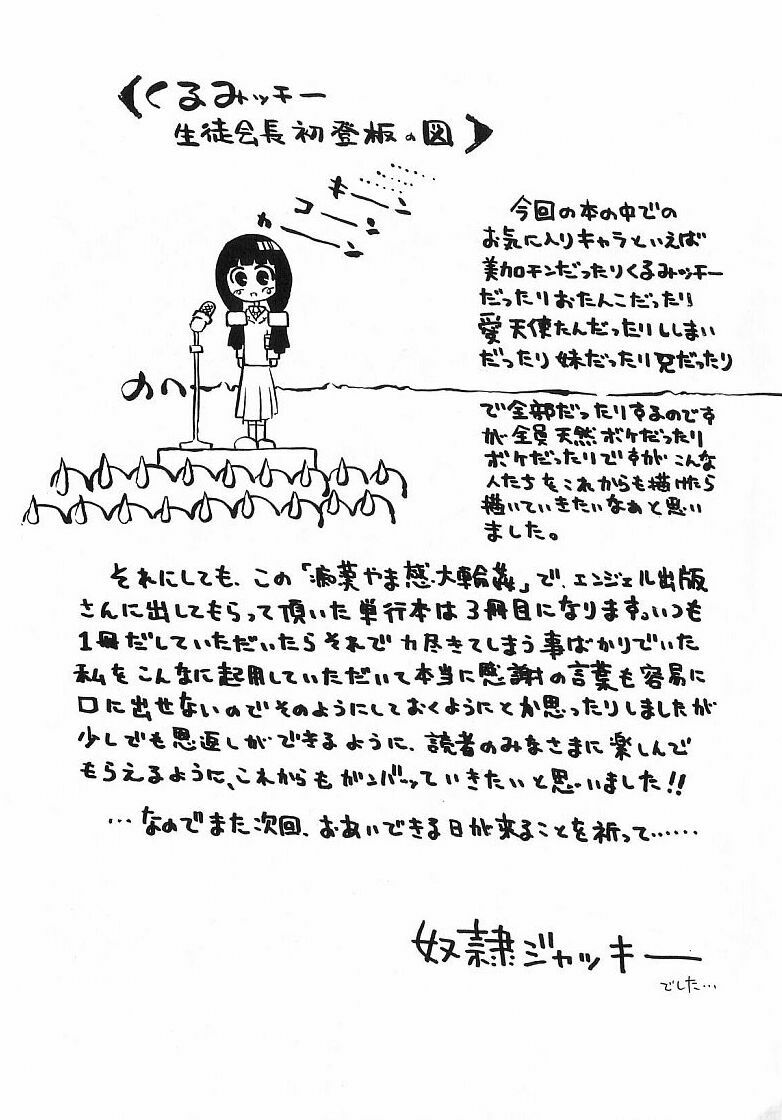 くるみッチー
生徒会長初登板の図
キーン
コーン
カーン
今回の本の中での
お気に入りキャラといえば
美加チンだったりくるみッチー
だったりおたんこだったり
愛天使たんだったりししまい
だったり妹だったり兄だったり
で全部だったりするのです
が全員天然ボケだったり
ボケだったりですがこんな
人たちをこれからも描けたら
描いていきたいなあと思い
ました。
それにしても、この「 やま感大輪姦」で、エンジェル出版
さんに出してもらって頂いた単行本は3冊目になります。いつも
1冊だしていただいたらそれで力尽きてしまう事ばかりでいた
私をこんなに起用していただいて本当に感謝の言葉も容易に
口に出せないのでそのようにしておくようにとか思ったりしましたが
少しでも恩返しができるように、読者のみなさまに楽しんで
もらえるように、これからもガンバッていきたいと思いました!!
…なのでまた次回、おあいできる日が来ることを祈って……
奴隷ジャッキー
でした…